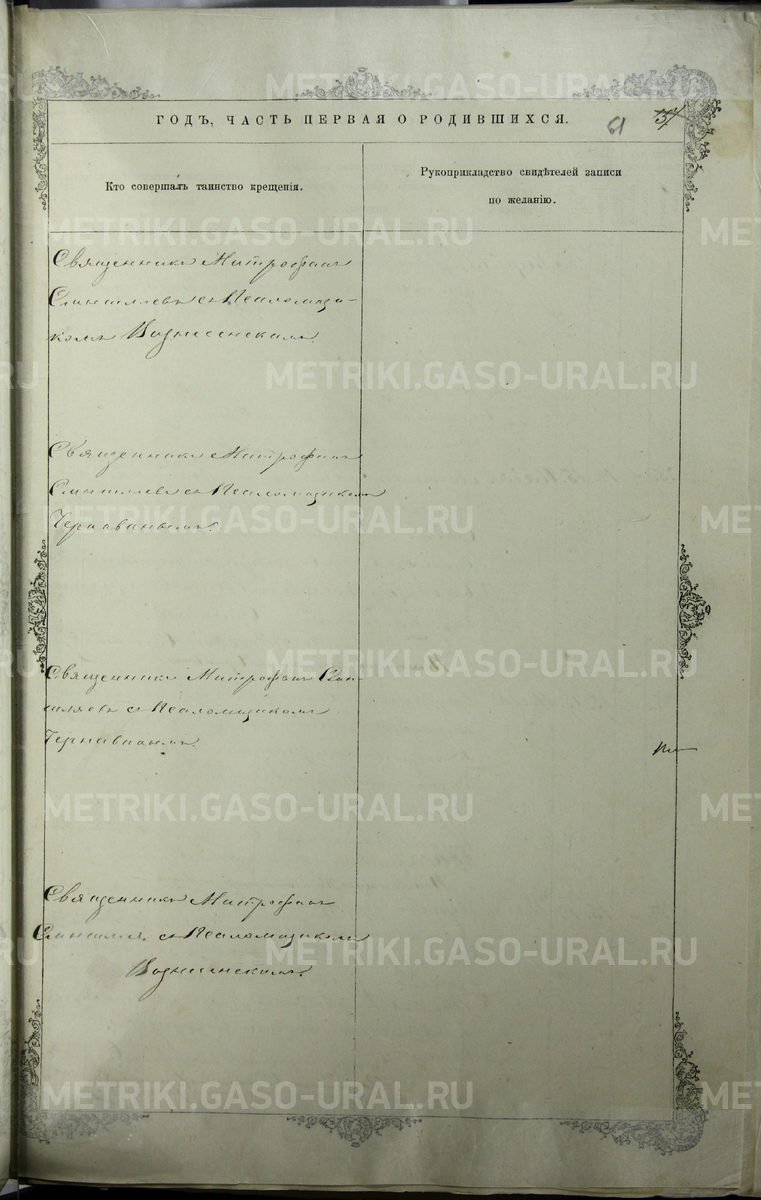 ГОДЪ, ЧАСТЬ ПЕРВАЯ О РОДИВШИХСЯ.
61 57
Кто совершалъ таинство крещенія.
Рукоприкладство свидѣтелей записи
по желанію.
Священникъ Митрофанъ
съ Псаломщи-
комъ Вознесенскимъ.
Священникъ Митрофанъ
съ Псаломщикомъ
Чернавинымъ.
Священникъ Митрофанъ
съ Псаломщикомъ
Чернавинымъ.
Священникъ Митрофанъ
съ Псаломщикомъ
Вознесенскимъ.
METRIKI.GASO-URAL.RU